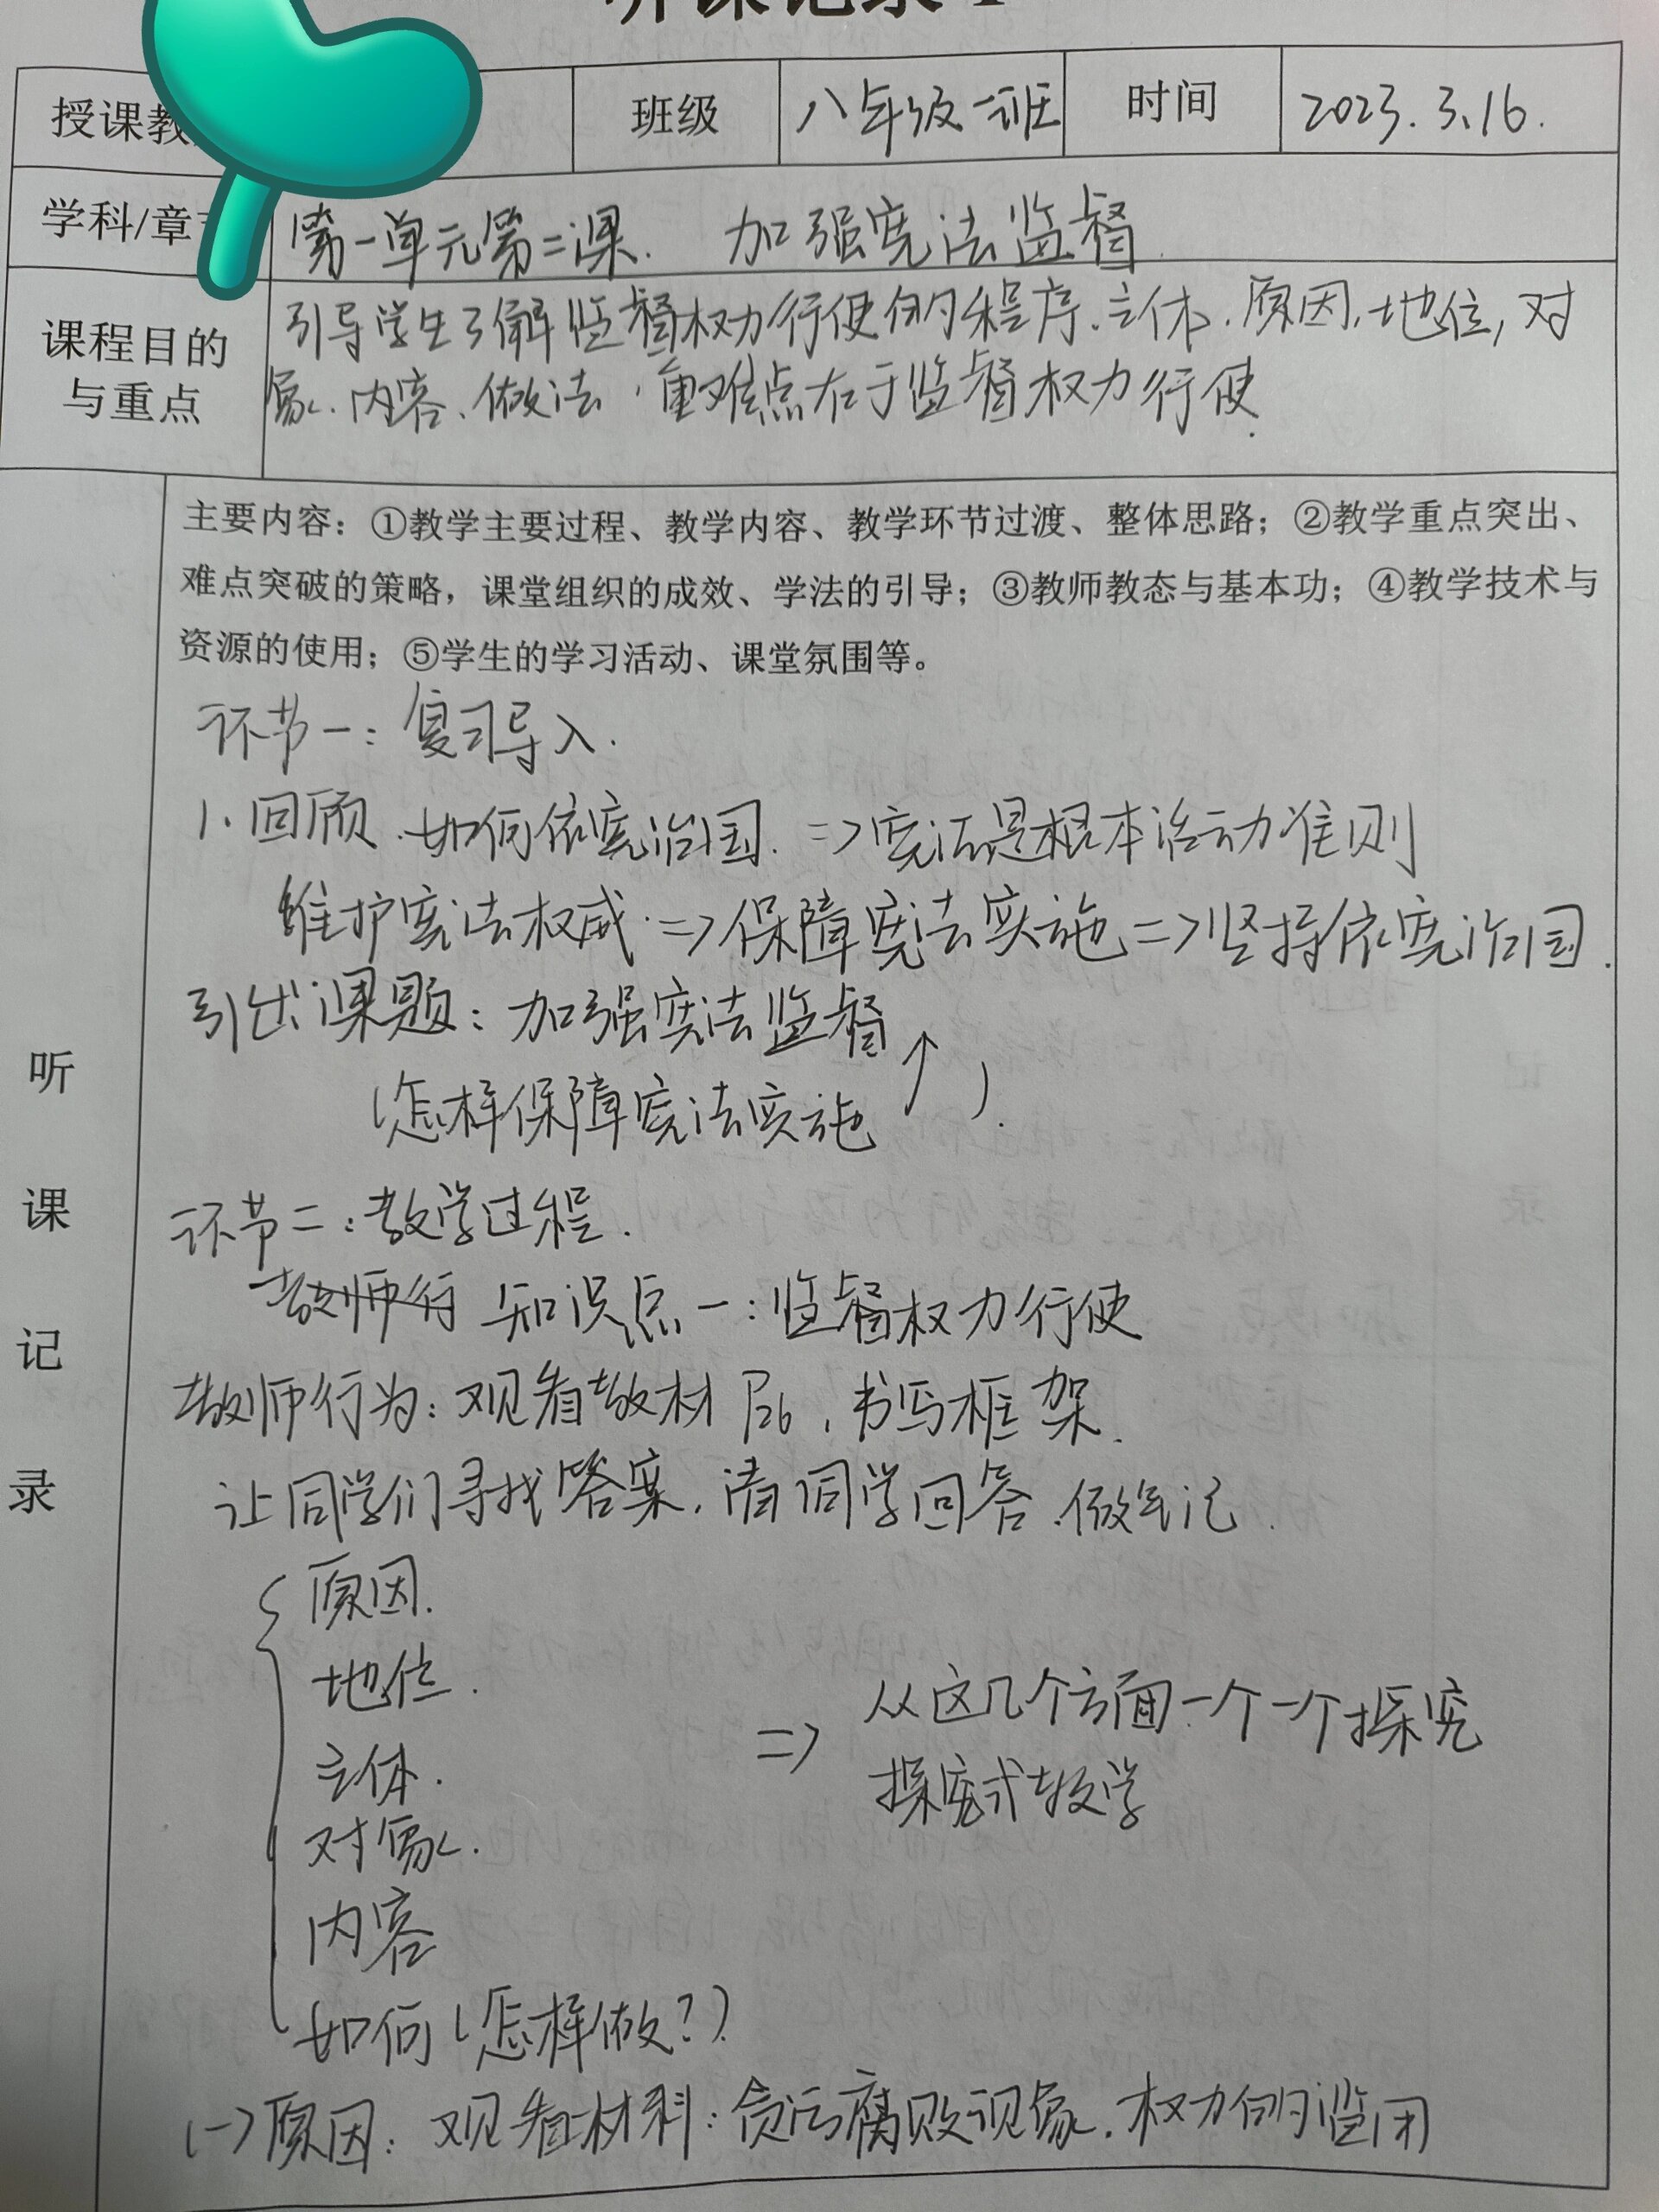 听课记录1
授课教 班级 八年级一班 时间 2023.3.16.
学科/章 第一单元第二课. 加强宪法监督.
课程目的与重点
引导学生了解监督权力行使的程序、主体、原因、地位，对
象、内容、做法，重难点在于监督权力行使.
主要内容：①教学主要过程、教学内容、教学环节过渡、整体思路；②教学重点突出、
难点突破的策略，课堂组织的成效、学法的引导；③教师教态与基本功；④教学技术与
资源的使用；⑤学生的学习活动、课堂氛围等。
听课记录
环节一：复习导入.
1、回顾.如何依宪治国. =>宪法是根本活动准则
维护宪法权威.=>保障宪法实施=>坚持依宪治国.
引出课题：加强宪法监督
(怎样保障宪法实施↑).
环节二：教学过程.
教师行 知识点一：监督权力行使
教师行为：观看教材P26，书写框架.
让同学们寻找答案，请同学回答.做笔记.
{原因.
地位.
主体.
对象.
内容
如何(怎样做？).
=> 从这几个方面一个一个探究
探究式教学
(一)原因：观看材料：贪污腐败现象.权力的